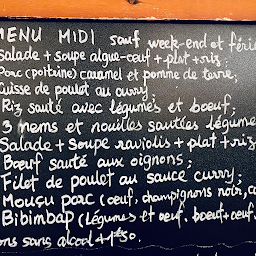 MENU MIDI sauf week-end et férié
Salade + soupe algue-œuf + plat + riz;
Porc (poitrine) caramel et pomme de terre;
Cuisse de poulet au curry;
Riz sauté avec légumes et boeuf;
3 nems et nouilles sautées légumes
Salade + Soupe raviolis + plat + riz
Bœuf sauté aux oignons;
Filet de poulet au sauce curry;
Mouçu porc (œuf, champignons noir,
Bibimbap (légumes et œuf, boeuf+oeuf.
sans alcool +1€50.